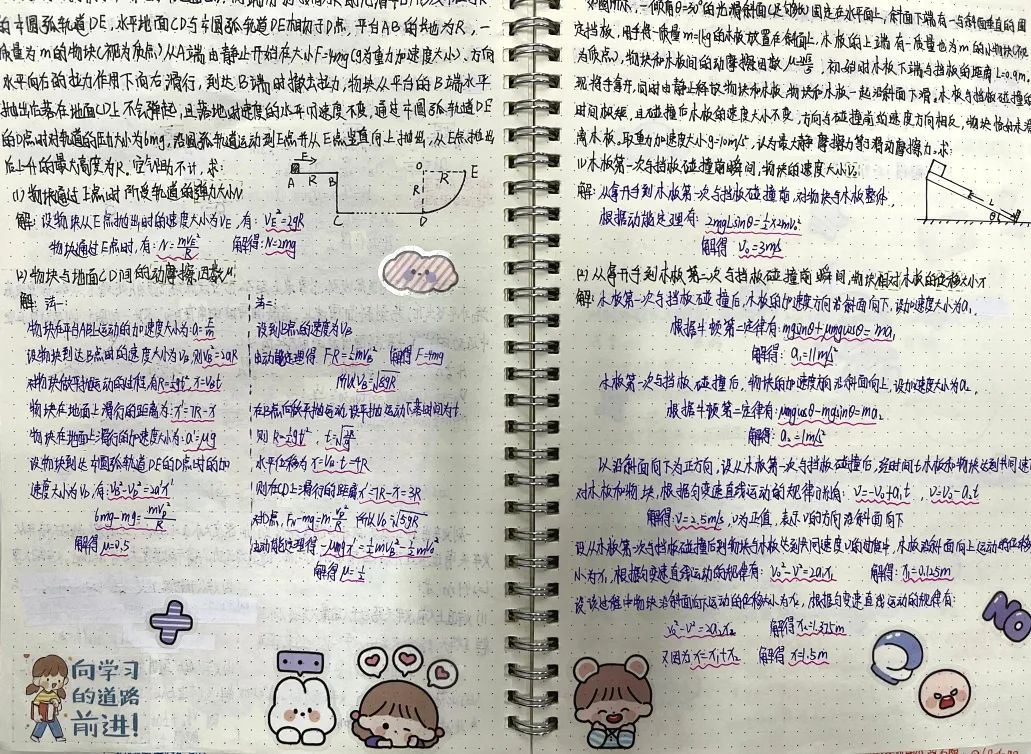 的1/4圆弧轨道DE,水平地面CD与1/4圆弧轨道DE相切于D点,平台AB的长也为R,一
质量为m的物块(视为质点)从A端由静止开始在大小F=4mg(g为重力加速度大小)、方向
水平向右的拉力作用下向右滑行,到达B端时撤去拉力,物块从平台的B端水平
抛出后落在地面CD上不会弹起,且落地时速度的水平分速度不变,通过1/4圆弧轨道DE
的D点时对轨道的压力大小为6mg,沿圆弧轨道运动到E点并从E点竖直向上抛出,从E点抛出
后上升的最大高度为R,空气阻力不计,求:
(1)物块通过E点时所受轨道的弹力大小N
解:设物块从E点抛出时的速度大小为VE,有:VE²=2gR
物块通过E点时,有:N=mVE²/R 解得:N=2mg
F
A R B
C
O R E
R
D
(2)物块与地面CD间的动摩擦因数μ
解:法一:
物块在平台AB上运动的加速度大小为:a=F/m
设物块到达B点时的速度大小为VB,则VB²=2aR
对物块做平抛运动的过程,有R=½gt² x=VBt
物块在地面上滑行的距离为:x'=7R-x
物块在地面上滑行的加速度大小为:a'=μg
设物块到达1/4圆弧轨道DE的D点时的加
速度大小为VD,有:VB²-VD²=2a'x'
6mg-mg=mVD²/R
解得μ=0.5
法二:
设到B点的速度为VB
由动能定理得 FR=½mVB² 解得F=4mg
所以VB=√8gR
在B点向做平抛运动,设平抛运动下落时间为t.
则R=½gt², t=√2R/g
水平位移为x=VB·t=4R
则在CD上滑行的距离x'=7R-x=3R
对D点,FN-mg=m·VD²/R 所以VD=√5gR
由动能定理得-μmgx'=½mVD²-½mVB²
解得μ=½
向学习
的道路
前进!
如图所示,一倾角θ=30°的光滑斜面(足够长)固定在水平面上,斜面下端有一与斜面垂直的固
定挡板,用手将一质量m=1kg的木板放置在斜面上,木板的上端有一质量也为m的小物块(视
为质点),物块和木板间的动摩擦因数,初始时木板下端与挡板的距离L=0.9m,
现将手拿开,同时由静止释放物块和木板,物块和木板一起沿斜面下滑。木板与挡板碰撞的
时间极短,且碰撞后木板的速度大小不变,方向与碰撞前的速度方向相反,物块恰好未滑
离木板,取重力加速度大小g=10m/s²,认为最大静摩擦力等于滑动摩擦力。求:
(1)木板第一次与挡板碰撞前瞬间,物块的速度大小V₀
解:从拿开手到木板第一次与挡板碰撞前,对物块与木板整体,
根据动能定理有:2mgLsinθ=½×2mV₀²
解得V₀=3m/s
L
θ
(2)从拿开手到木板第二次与挡板碰撞前瞬间,物块相对木板的位移大小x
解:木板第一次与挡板碰撞后,木板的加速度方向沿斜面向下,设加速度大小为a₁,
根据牛顿第二定律有:mgsinθ+μmgcosθ=ma₁
解得:a₁=11m/s²
木板第一次与挡板碰撞后,物块的加速度方向沿斜面向上,设加速度大小为a₂,
根据牛顿第二定律有:μmgcosθ-mgsinθ=ma₂
解得:a₂=1m/s²
以沿斜面向下为正方向,设从木板第一次与挡板碰撞后,经时间t木板和物块达到共同速度
对木板和物块,根据匀变速直线运动的规律有:V=-V₀+a₁t,V=V₀-a₂t
解得:V=2.5m/s,V为正值,表示V的方向沿斜面向下
设从木板第一次与挡板碰撞后到物块与木板达到共同速度V的过程中,木板沿斜面向上运动的位移
小为x₁,根据匀变速直线运动的规律有:V₀²-V²=2a₁x₁ 解得:x₁=0.125m
设该过程中物块沿斜面向下运动的位移大小为x₂,根据匀变速直线运动的规律有:
V₀²-V²=2a₂x₂ 解得x₂=1.375m
又因为x=x₁+x₂ 解得x=1.5m
NO